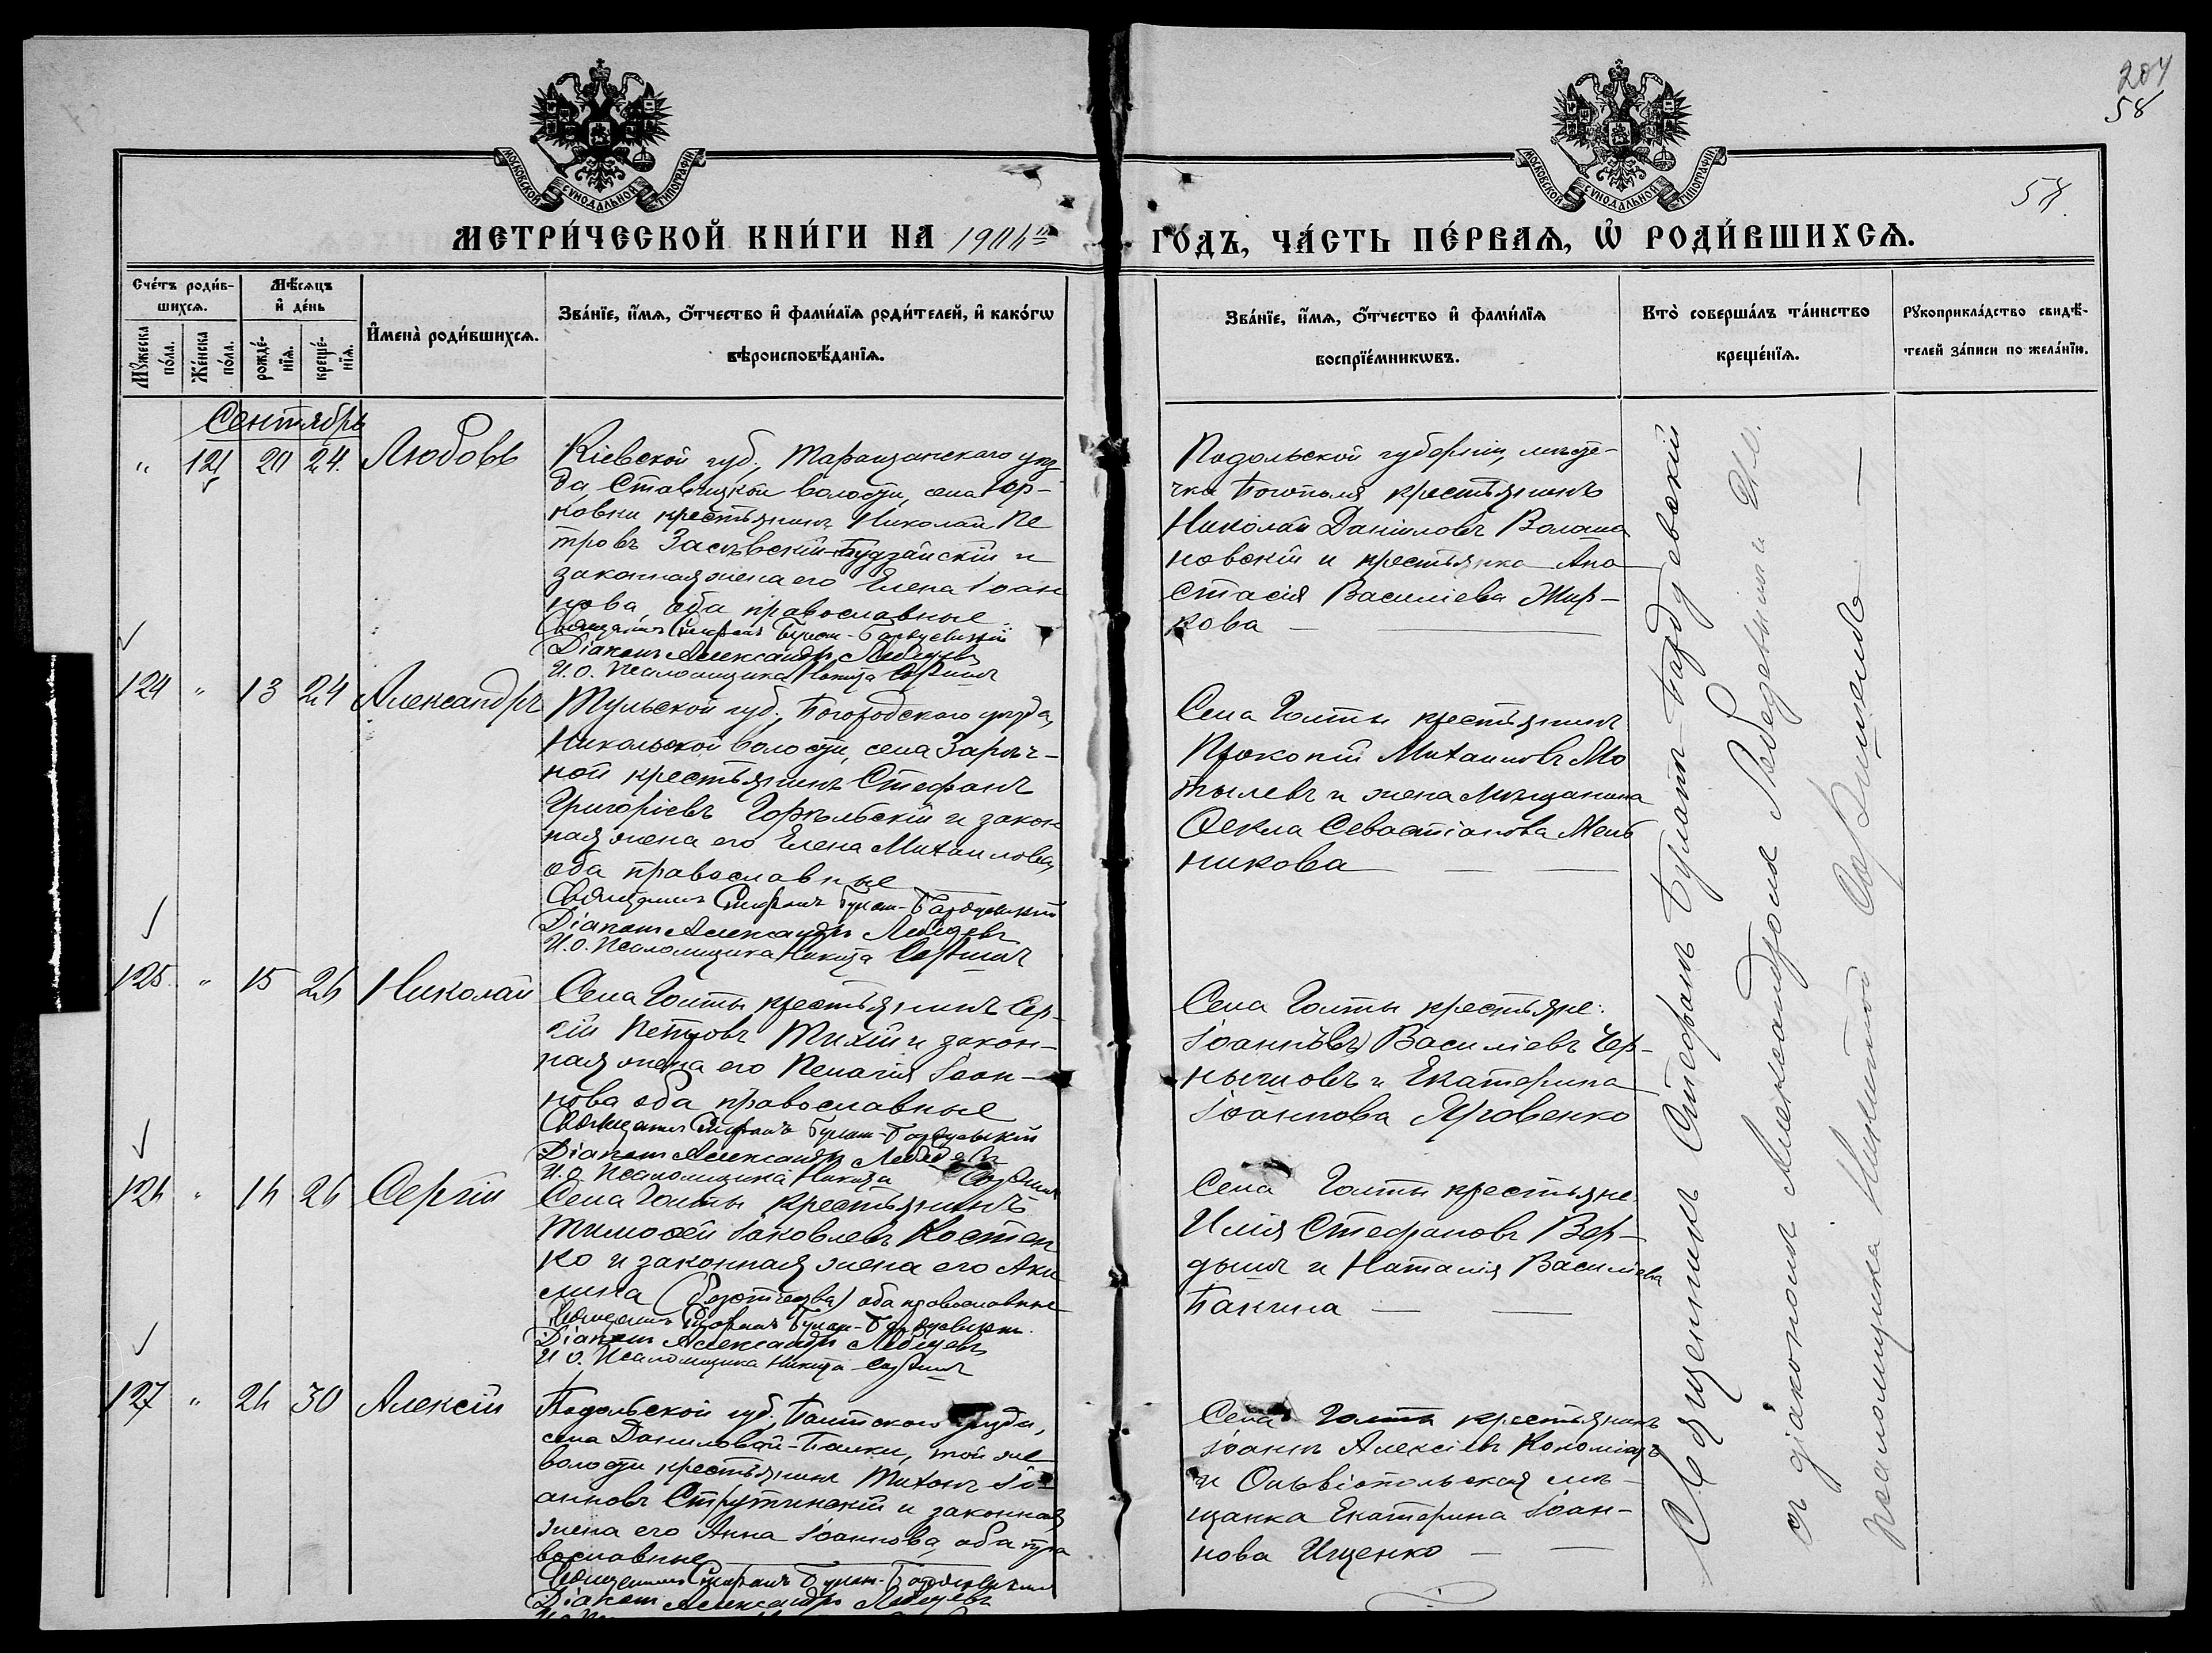 204
58
58.
МОСКОВСКОЙ СѴНОДАЛЬНОЙ ТИПОГРАФІИ.
МОСКОВСКОЙ СѴНОДАЛЬНОЙ ТИПОГРАФІИ.
МЕТРИ́ЧЕСКОЙ КНИ́ГИ НА 190
ГО́ДЪ, ЧА́СТЬ ПЕ́РВАЯ, Ѡ РОДИ́ВШИХСЯ.
Сче́тъ роди́в-
шихся.
Мꙋ́жеска по́ла.
Же́нска по́ла.
Мѣ́сяцъ
и҆ де́нь
рожде́-нїя.
креще́-нїя.
И҆мена̀ роди́вшихся.
Зва́нїе, и҆́мя, ѻ҆́тчество и҆ фами́лїя роди́телей, и҆ како́гѡ
вѣроисповѣ́данїя.
Зва́нїе, и҆́мя, ѻ҆́тчество и҆ фами́лїя
воспрїе́мникѡвъ.
Кто̀ соверша́лъ та́инство
креще́нїя.
Рꙋкоприкла́дство свидѣ́-
телей за́писи по жела́нїю.
Сентябрь
" 121 20 24. Любовь
Кіевской губ., Таращанскаго уѣз
да, Ставищской волости, села Юр-
ковки крестьянинъ Николай Пе
тровъ Засѣвскій-Будзайскій и
законная жена его Елена Іоан
нова, оба православные
Священникъ Стефанъ Булат-Бардуевскій
Діаконъ Александръ Лебедевъ
И.О. Псаломщика Никита
Подольской губерніи, мѣсте-
чка Богополя крестьянинъ
Николай Даніиловъ Волоша
новскій и крестьянка Ана
стасія Василіева Жир-
кова
124 " 13 24 Александръ
Тульской губ., Богородскаго уѣзда,
Никольской волости, села Зарѣч-
ной крестьянинъ Стефанъ
Григоріевъ Горѣльскій и закон
ная жена его Елена Михаилова,
оба православные
Священникъ Стефанъ Булат-Бардуевскій
Діаконъ Александръ Лебедевъ
И.О. Псаломщика Никита
Села Голты крестьянинъ
Прокопій Михаиловъ Мо
тылевъ и жена мѣщанина
Ѳекла Севастіанова Мель
никова
125 " 15 26 Николай
Села Голты крестьянинъ Сер-
гій Петровъ Тихій и закон-
ная жена его Пелагія Іоан-
нова оба православные
Священникъ Стефанъ Булат-Бардуевскій
Діаконъ Александръ Лебедевъ
И.О. Псаломщика Никита
Села Голты крестьяне:
Іоаннъ Василіевъ Чер-
нышовъ и Екатерина
Іоаннова Яровенко
126 " 16 26 Сергій
Села Голты крестьянинъ
Тимоѳей Іаковлевъ Костен
ко и законная жена его Аки
лина (Безотчества) оба православные
Священникъ Стефанъ Булат-Бардуевскій
Діаконъ Александръ Лебедевъ
И О. Псаломщика Никита
Села Голты крестьяне
Илія Стефановъ Вер-
дышъ и Наталія Василіева
Бакшина
127 " 26 30 Алексій
Подольской губ., Балтскаго уѣзда,
села Даниловой-Балки, той же
волости крестьянинъ Тихонъ Іо-
анновъ Струтинскій и законная
жена его Анна Іоаннова, оба пра
вославные
Священникъ Стефанъ Булат-Бардуевскій
Діаконъ Александръ Лебедевъ
Села Голта крестьянинъ
Іоаннъ Алексіевъ Коломіецъ
и Ольвіопольская мѣ-
щанка Екатерина Іоан-
нова Ищенко
Священникъ Стефанъ Булатъ-Бардуевскій
съ діакономъ Александромъ Лебедевымъ и И.О.
псаломщика Никитою